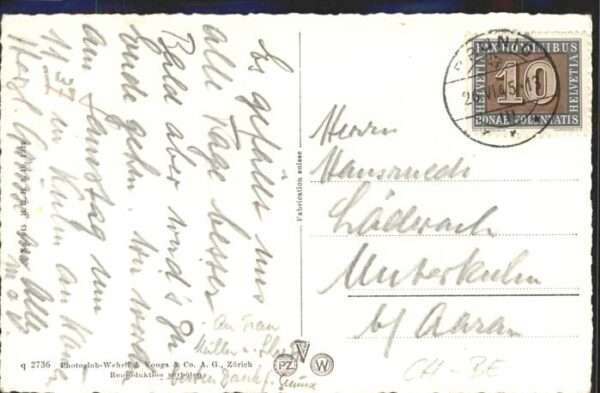 Es gefällt uns
alle Tage besser
Bald aber wird's zu
Ende gehn. Wir werden
am Samstag um
11 37 in Kulm an kommen
Herzl. Grüsse von Allen
Fabrication suisse
q 2736 Photoglob-Wehrli & Vouga & Co. A. G., Zürich
Reproduktion verboten
An Frau
Müller u.
Dank f. Grüsse
PZ W
PAX HOMINIBUS
HELVETIA 10 HELVETIA
BONAE VOLUNTATIS
Herrn
Hansruedi
Läderach
Unterkulm
b/ Aarau
CH-BE